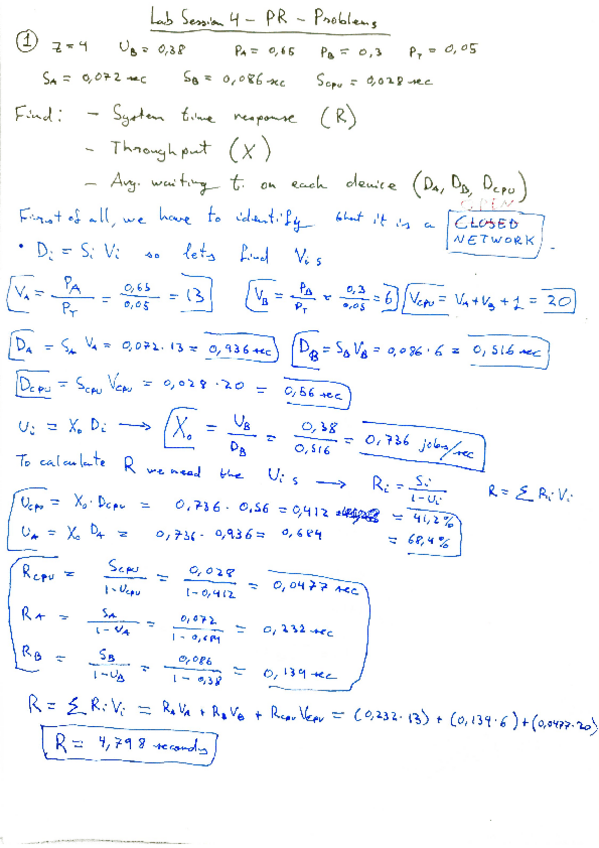 Lab Session 4 - PR - Problems
① Z = 4 U_B = 0,38 P_A = 0,65 P_B = 0,3 P_T = 0,05
S_A = 0,072 sec S_B = 0,086 sec S_CPU = 0,028 sec
Find: - System time response (R)
- Throughput (X)
- Avg. waiting t. on each device (D_A, D_B, D_CPU)
OPEN
First of all, we have to identify that it is a CLOSED NETWORK.
• D_i = S_i V_i so lets find V_i s
V_A = P_A / P_T = 0,65 / 0,05 = 13 V_B = P_B / P_T = 0,3 / 0,05 = 6 V_CPU = V_A + V_B + 1 = 20
D_A = S_A V_A = 0,072 · 13 = 0,936 sec D_B = S_B V_B = 0,086 · 6 = 0,516 sec
D_CPU = S_CPU V_CPU = 0,028 · 20 = 0,56 sec
U_i = X_o D_i → X_o = U_B / D_B = 0,38 / 0,516 = 0,736 jobs/sec
To calculate R we need the U_i s → R_i = S_i / 1-U_i R = Σ R_i V_i
U_CPU = X_o · D_CPU = 0,736 · 0,56 = 0,412 = 41,2%
U_A = X_o D_A = 0,736 · 0,936 = 0,684 = 68,4%
R_CPU = S_CPU / 1-U_CPU = 0,028 / 1-0,412 = 0,0477 sec
R_A = S_A / 1-U_A = 0,072 / 1-0,684 = 0,232 sec
R_B = S_B / 1-U_B = 0,086 / 1-0,38 = 0,139 sec
R = Σ R_i V_i = R_A V_A + R_B V_B + R_CPU V_CPU = (0,232·13) + (0,139·6) + (0,0477·20)
R = 4,798 seconds